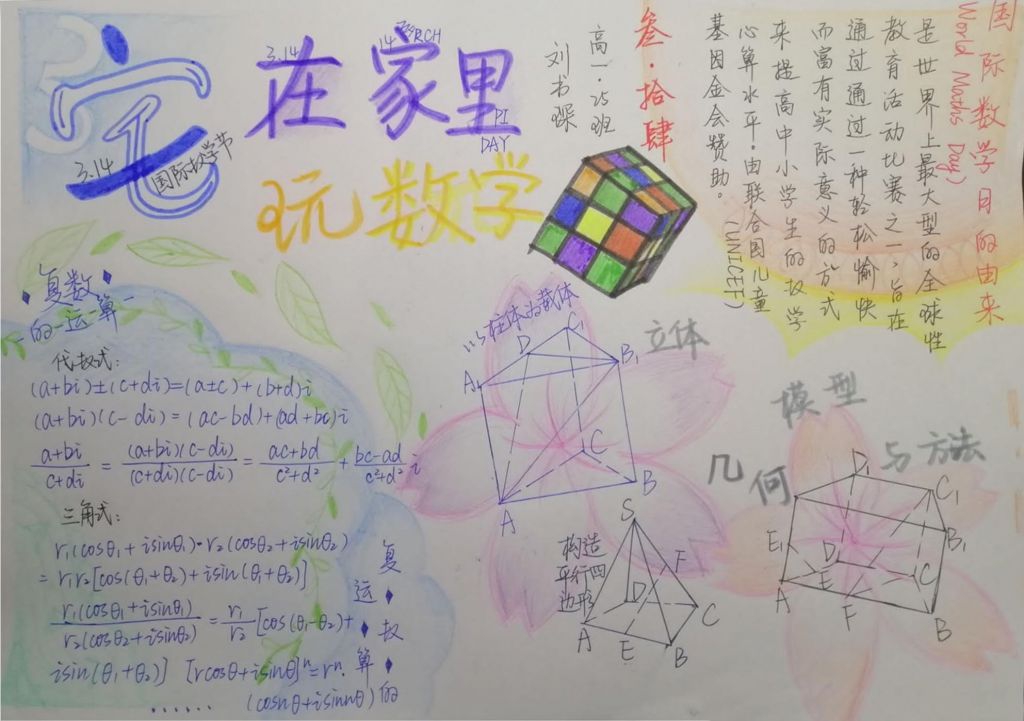 宅在家里
3.14
3.14
14 MARCH
PI
DAY
国际数学节
玩数学
叁·拾肆
高一·25班
刘书琛
国际数学日的由来
(World Maths Day)
是世界上最大型的全球性
教育活动比赛之一,旨在
通过通过一种轻松愉快
而富有实际意义的方式
来提高中小学生的数学
心算水平·由联合国儿童
(UNICEF)
基因金会赞助。
复数
的-运-算-
代数式:
(a+bi)±(c+di)=(a±c)+(b+d)i
(a+bi)(c-di)=(ac-bd)+(ad+bc)i
a+bi/c+di = (a+bi)(c-di)/(c+di)(c-di) = ac+bd/c²+d² + bc-ad/c²+d² i
三角式:
r₁(cosθ₁+isinθ₁)·r₂(cosθ₂+isinθ₂)
=r₁r₂[cos(θ₁+θ₂)+isin(θ₁+θ₂)]
r₁(cosθ₁+isinθ₁)/r₂(cosθ₂+isinθ₂) = r₁/r₂[cos(θ₁-θ₂)+
isin(θ₁+θ₂)] [rcosθ+isinθ]ⁿ=rⁿ·
...... (cosnθ+isinnθ)
复数的运算
以柱体为载体
D C₁
A₁ B₁
C
A B
立体
几何
模型
与方法
构造
平行四
边形
S
F
D C
A E B
D₁ C₁
B₁
E₁ D C
A E F B